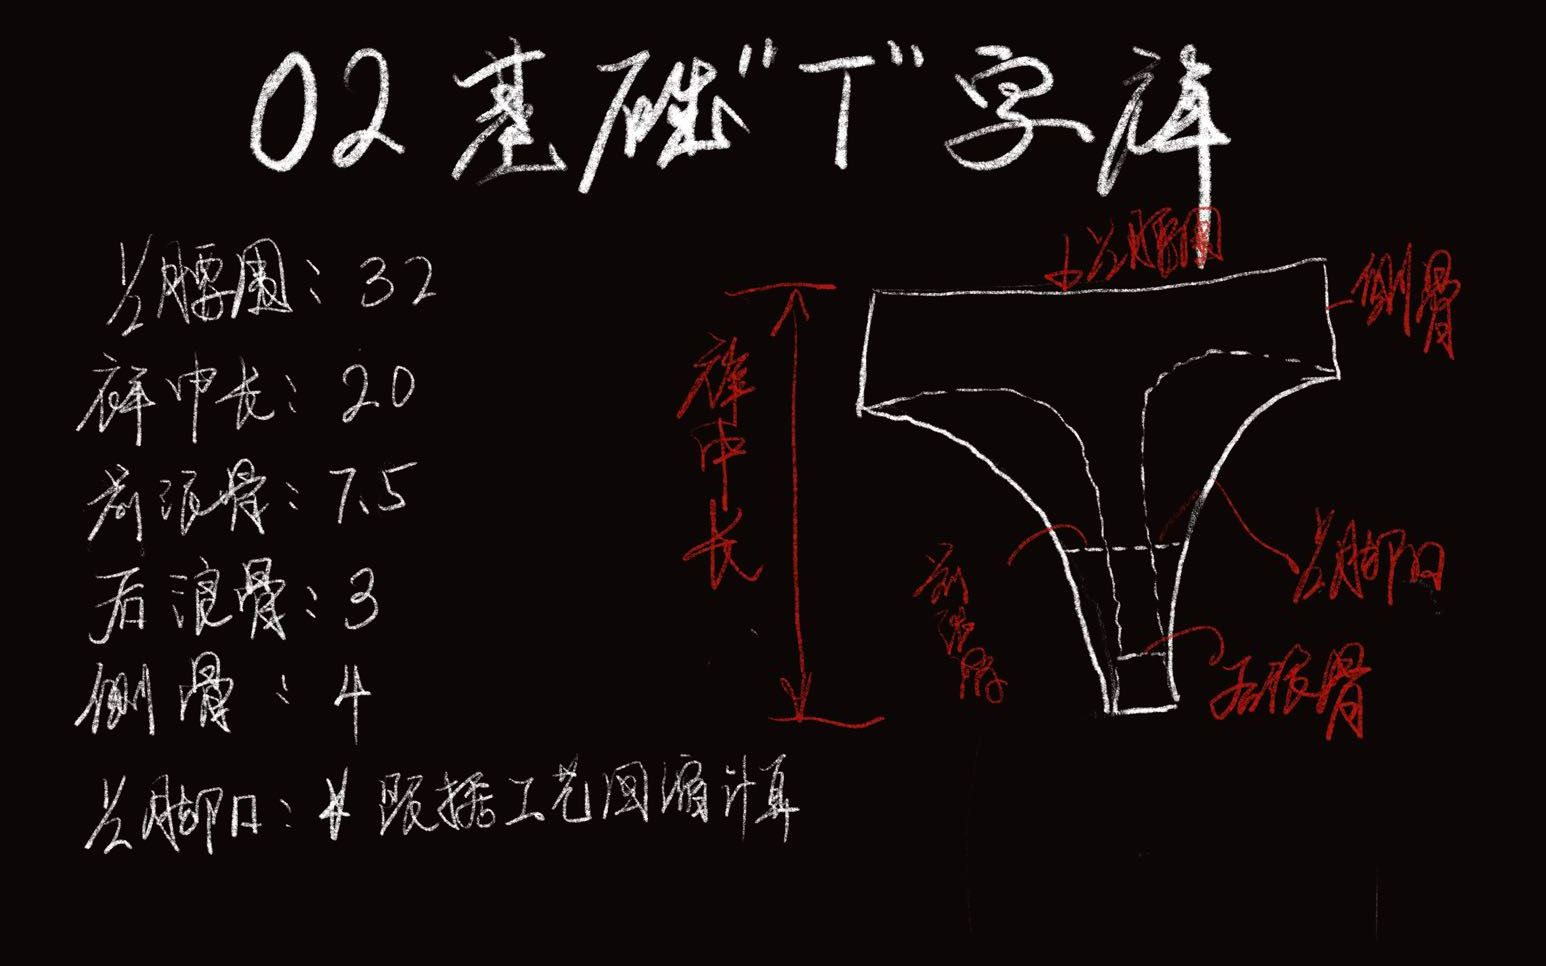 02基础"T"字裤
½腰围：32
裤中长：20
前浪骨：7.5
后浪骨：3
侧骨：4
½脚口：根据工艺回缩计算
½腰围
侧骨
裤中长
½脚口
前浪骨
后浪骨